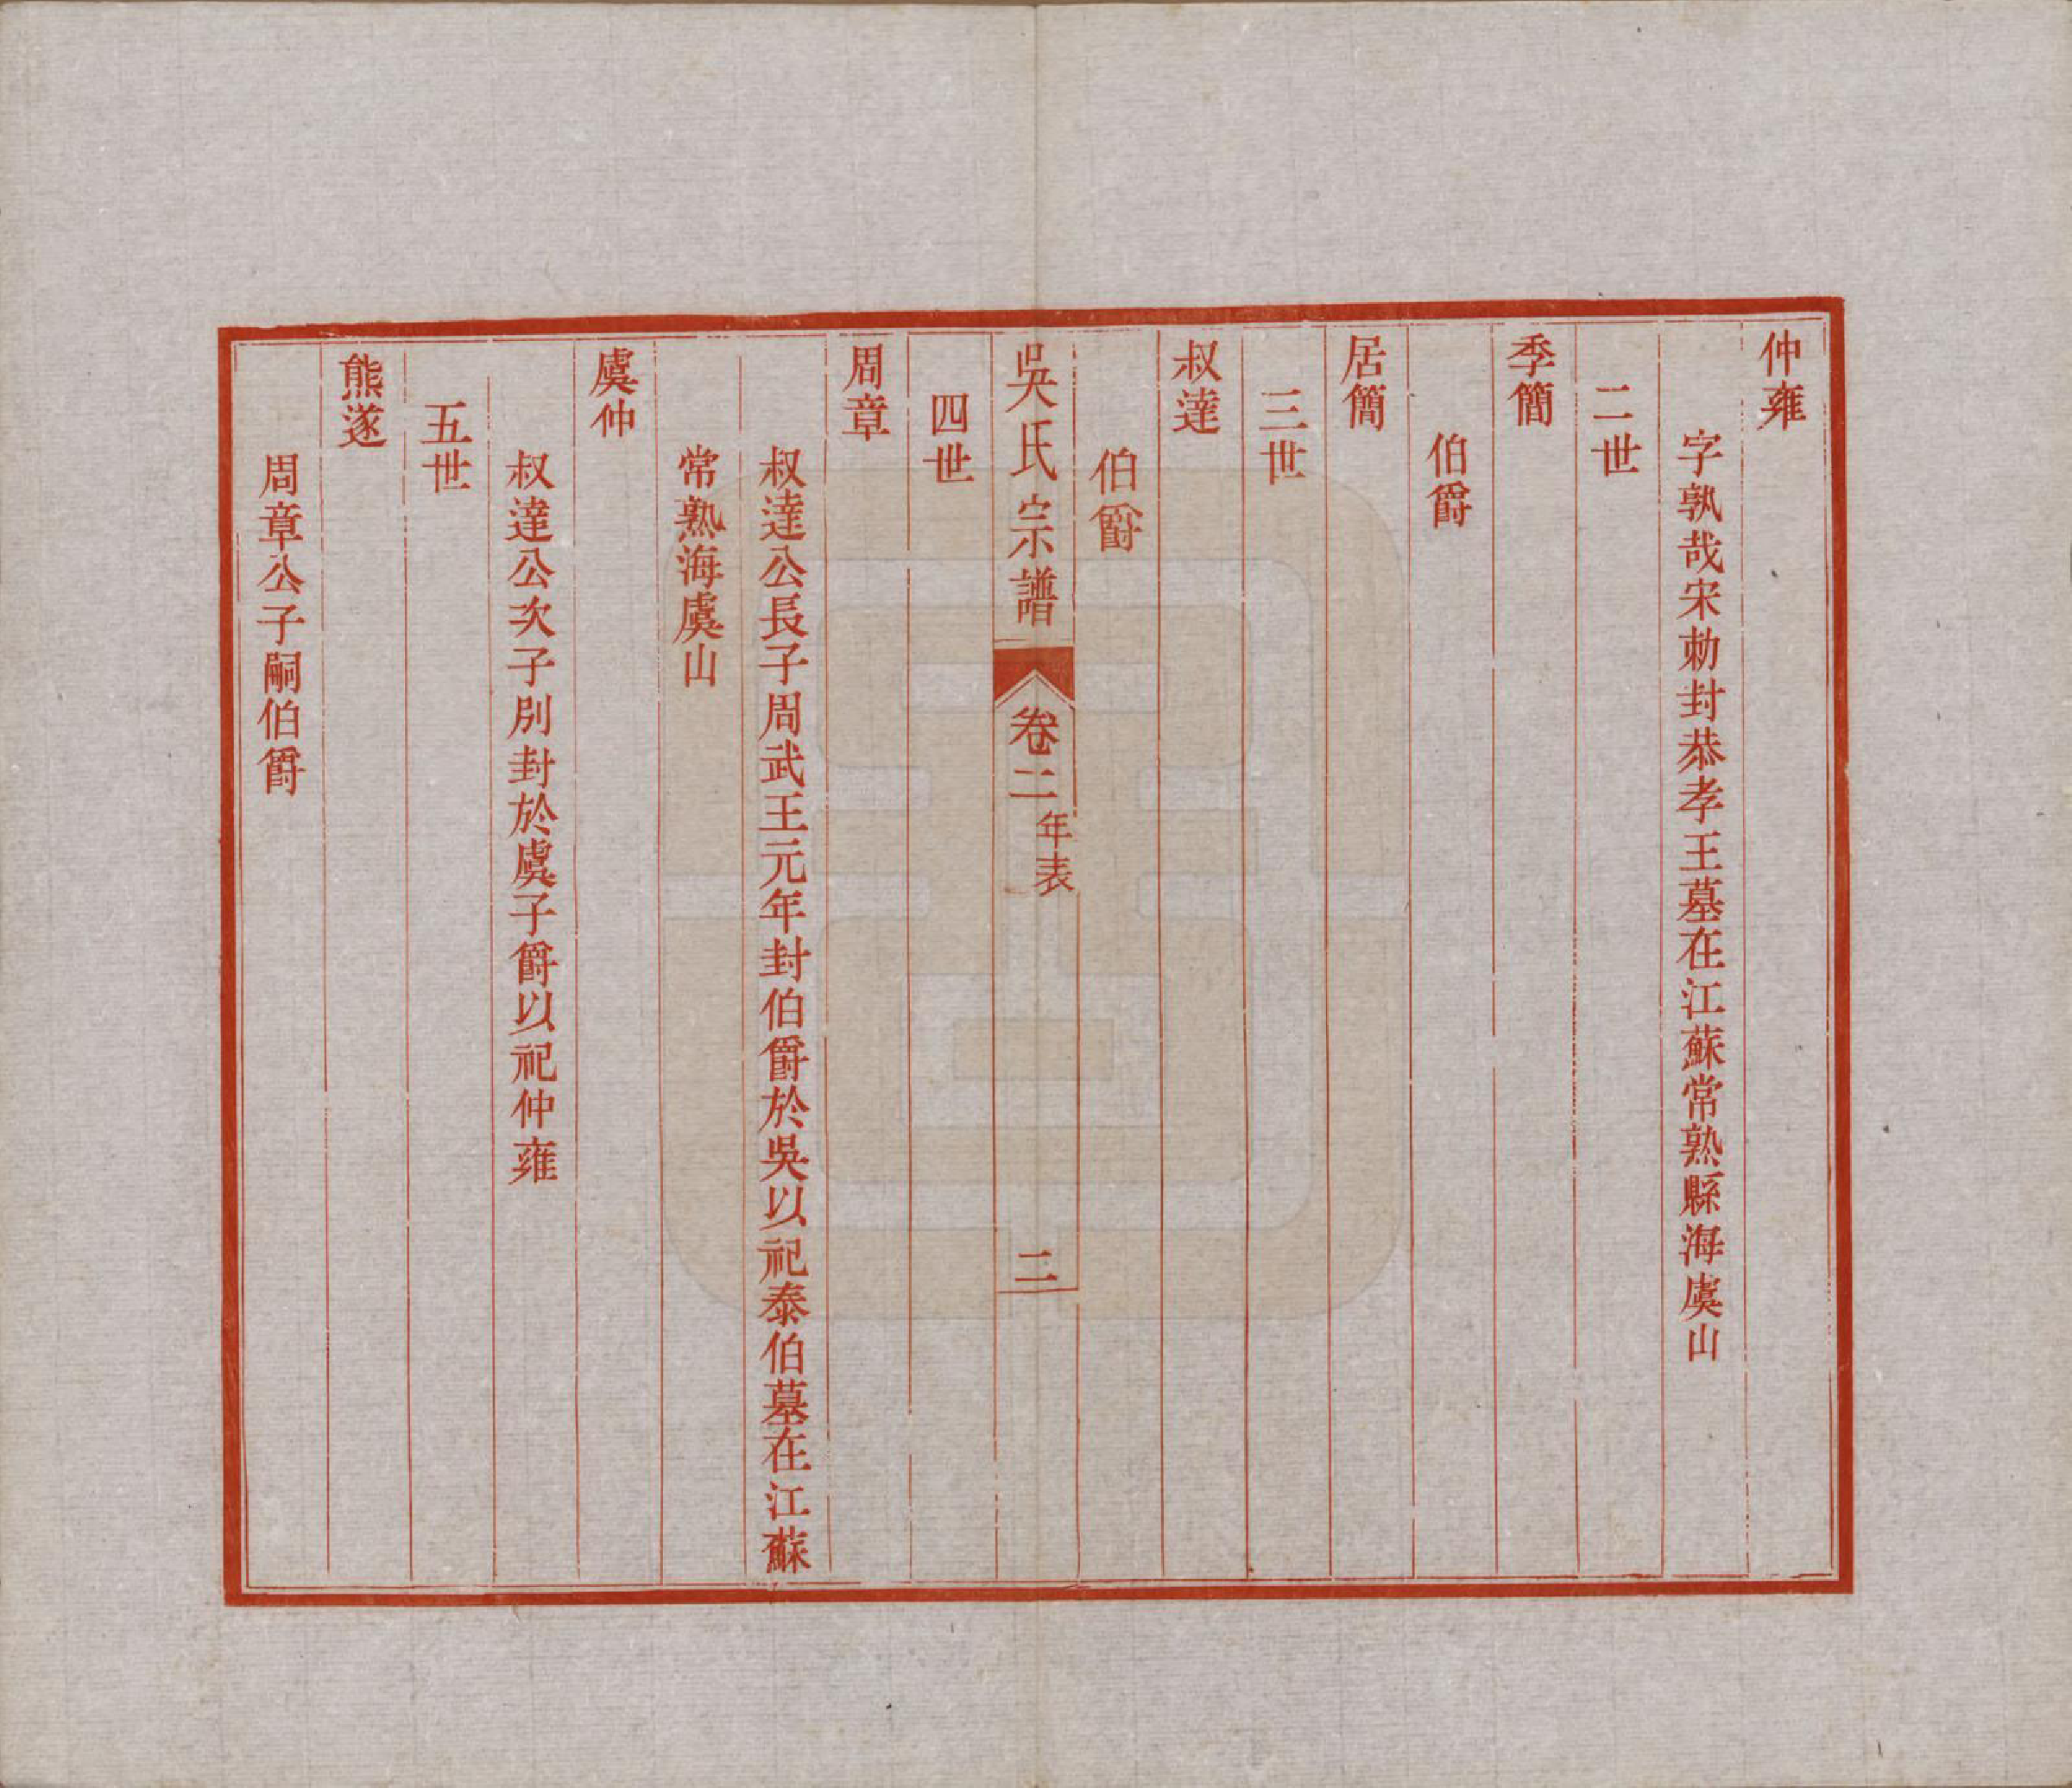 仲雍
字孰哉宋勅封恭孝王墓在江蘇常熟縣海虞山
二世
季簡
伯爵
居簡
三世
叔達
伯爵
吳氏宗譜
卷二
年表
二
四世
周章
叔達公長子周武王元年封伯爵於吳以祀泰伯墓在江蘇
常熟海虞山
虞仲
叔達公次子別封於虞子爵以祀仲雍
五世
熊遂
周章公子嗣伯爵